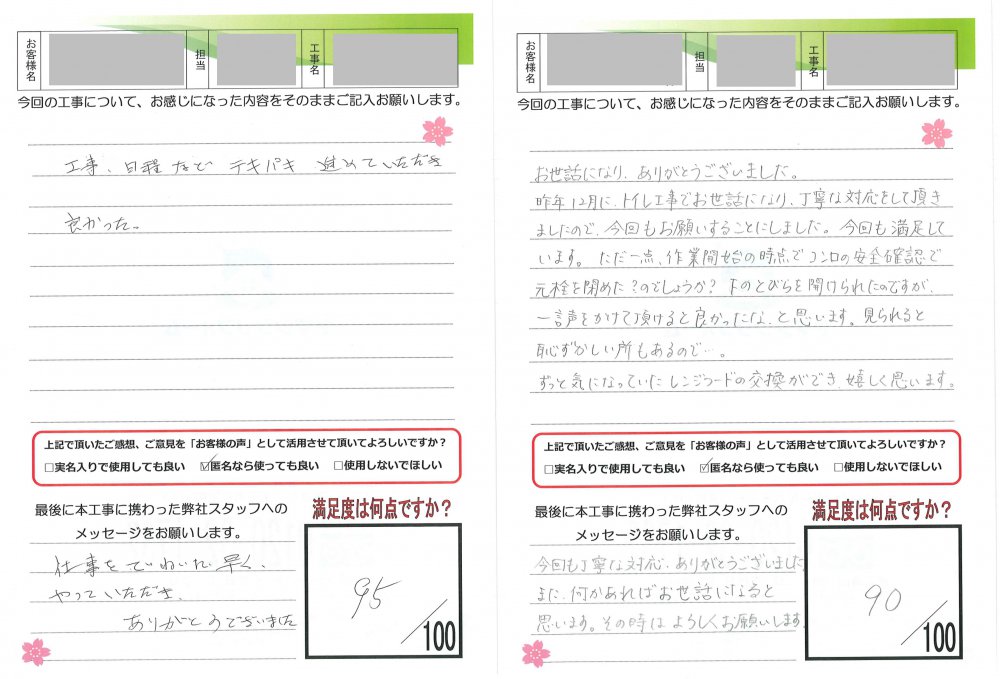 お客様名
担当
工事名
今回の工事について、お感じになった内容をそのままご記入お願いします。
工事、日程など テキパキ 進めていただき
良かった。
上記で頂いたご感想、ご意見を「お客様の声」として活用させて頂いてよろしいですか？
□実名入りで使用しても良い ☑匿名なら使っても良い □使用しないでほしい
最後に本工事に携わった弊社スタッフへの
メッセージをお願いします。
仕事をていねいに早く、
やっていただき、
ありがとうございました
満足度は何点ですか？
95/100
お客様名
担当
工事名
今回の工事について、お感じになった内容をそのままご記入お願いします。
お世話になり、ありがとうございました。
昨年12月に、トイレ工事でお世話になり、丁寧な対応をして頂き
ましたので、今回もお願いすることにしました。今回も満足して
います。ただ一点、作業開始の時点でコンロの安全確認で
元栓を閉めた？のでしょうか？下のとびらを開けられたのですが、
一言声をかけて頂けると良かったな、と思います。見られると
恥ずかしい所もあるので…。
ずっと気になっていたレンジフードの交換ができ、嬉しく思います。
上記で頂いたご感想、ご意見を「お客様の声」として活用させて頂いてよろしいですか？
□実名入りで使用しても良い ☑匿名なら使っても良い □使用しないでほしい
最後に本工事に携わった弊社スタッフへの
メッセージをお願いします。
今回も丁寧な対応、ありがとうございました
また、何かあればお世話になると
思います。その時はよろしくお願いします。
満足度は何点ですか？
90/100